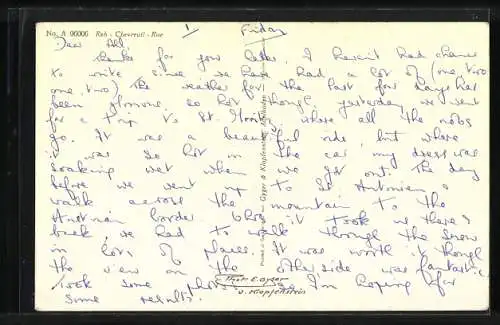 No. A 00006 Reh - Chevreuil - Roe
1 Friday
Dear Ali
Thanks for your letter. I haven't had chance
to write since we have had a lot of (one, two
one, two) The weather for the last few days has
been glorious, so hot though, yesterday we went
for a trip to St. Moritz, where all the nobs
go. It was a beautiful ride, but where
it was so hot in the car my dress was
soaking wet when we got out. The day
before we went up to St Antonien &
walk across the mountain to the
Austrian border it took us there &
back we had to walk through the snow
in lots of places. It was worth it though
the view on the other side was fantastic
I took some so I'm hoping for
some results.
Gyger & Klopfenstein, Adelboden
Phot. E. Gyger
u. Klopfenstein